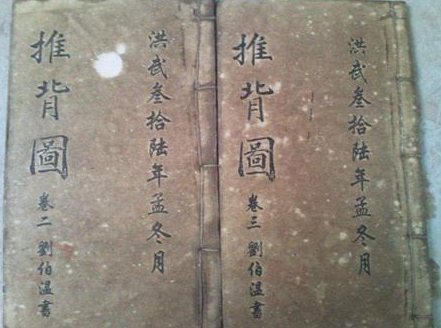 洪武叁拾陸年孟冬月
推背圖 卷二 劉伯溫書
洪武叁拾陸年孟冬月
推背圖 卷三 劉伯溫書